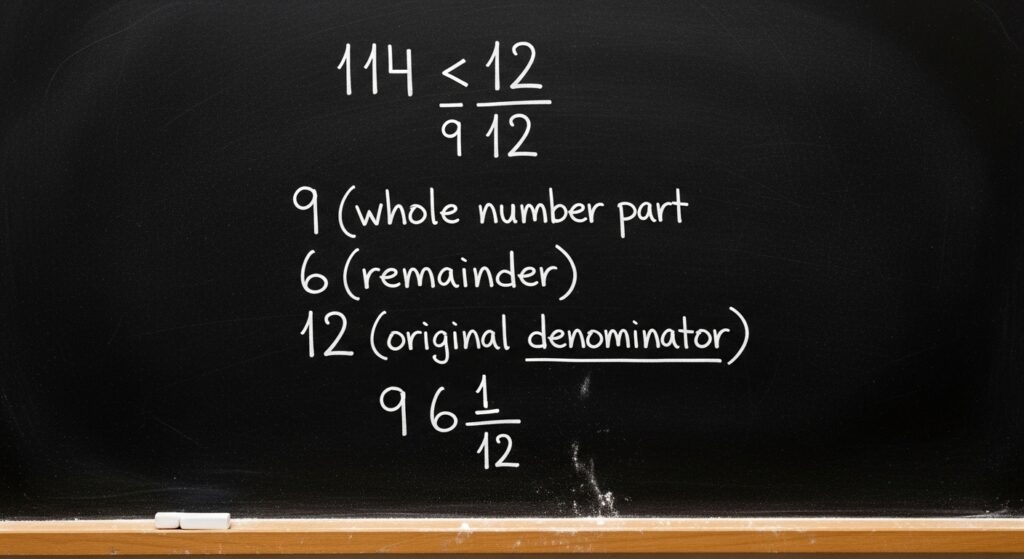 114 < 12
9 12
9 (whole number part
6 (remainder)
12 (original denominator)
9 6 1
12